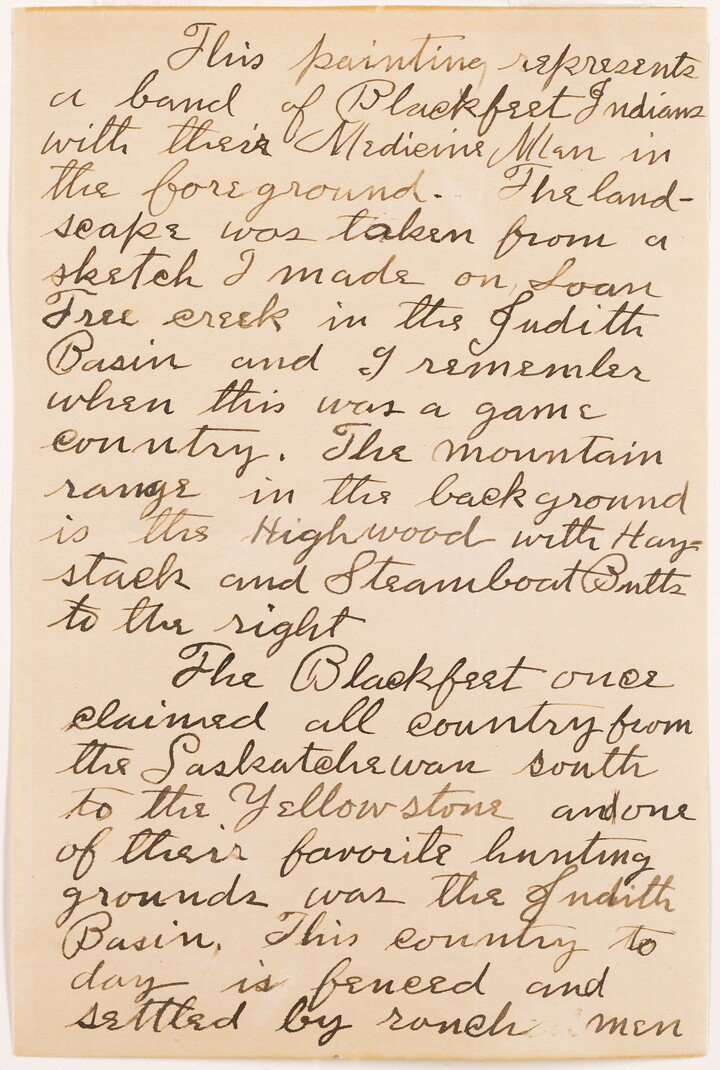 This painting represents
a band of Blackfeet Indians
with their Medicine Man in
the foreground. The land-
scape was taken from a
sketch I made on Loan
Tree creek in the Judith
Basin and I remember
when this was a game
country. The mountain
range in the background
is the Highwood with Hay=
stack and Steamboat Butts
to the right
The Blackfeet once
claimed all country from
the Saskatchewan south
to the Yellowstone and one
of their favorite hunting
grounds was the Judith
Basin. This country to
day is fenced and
settled by ranch men